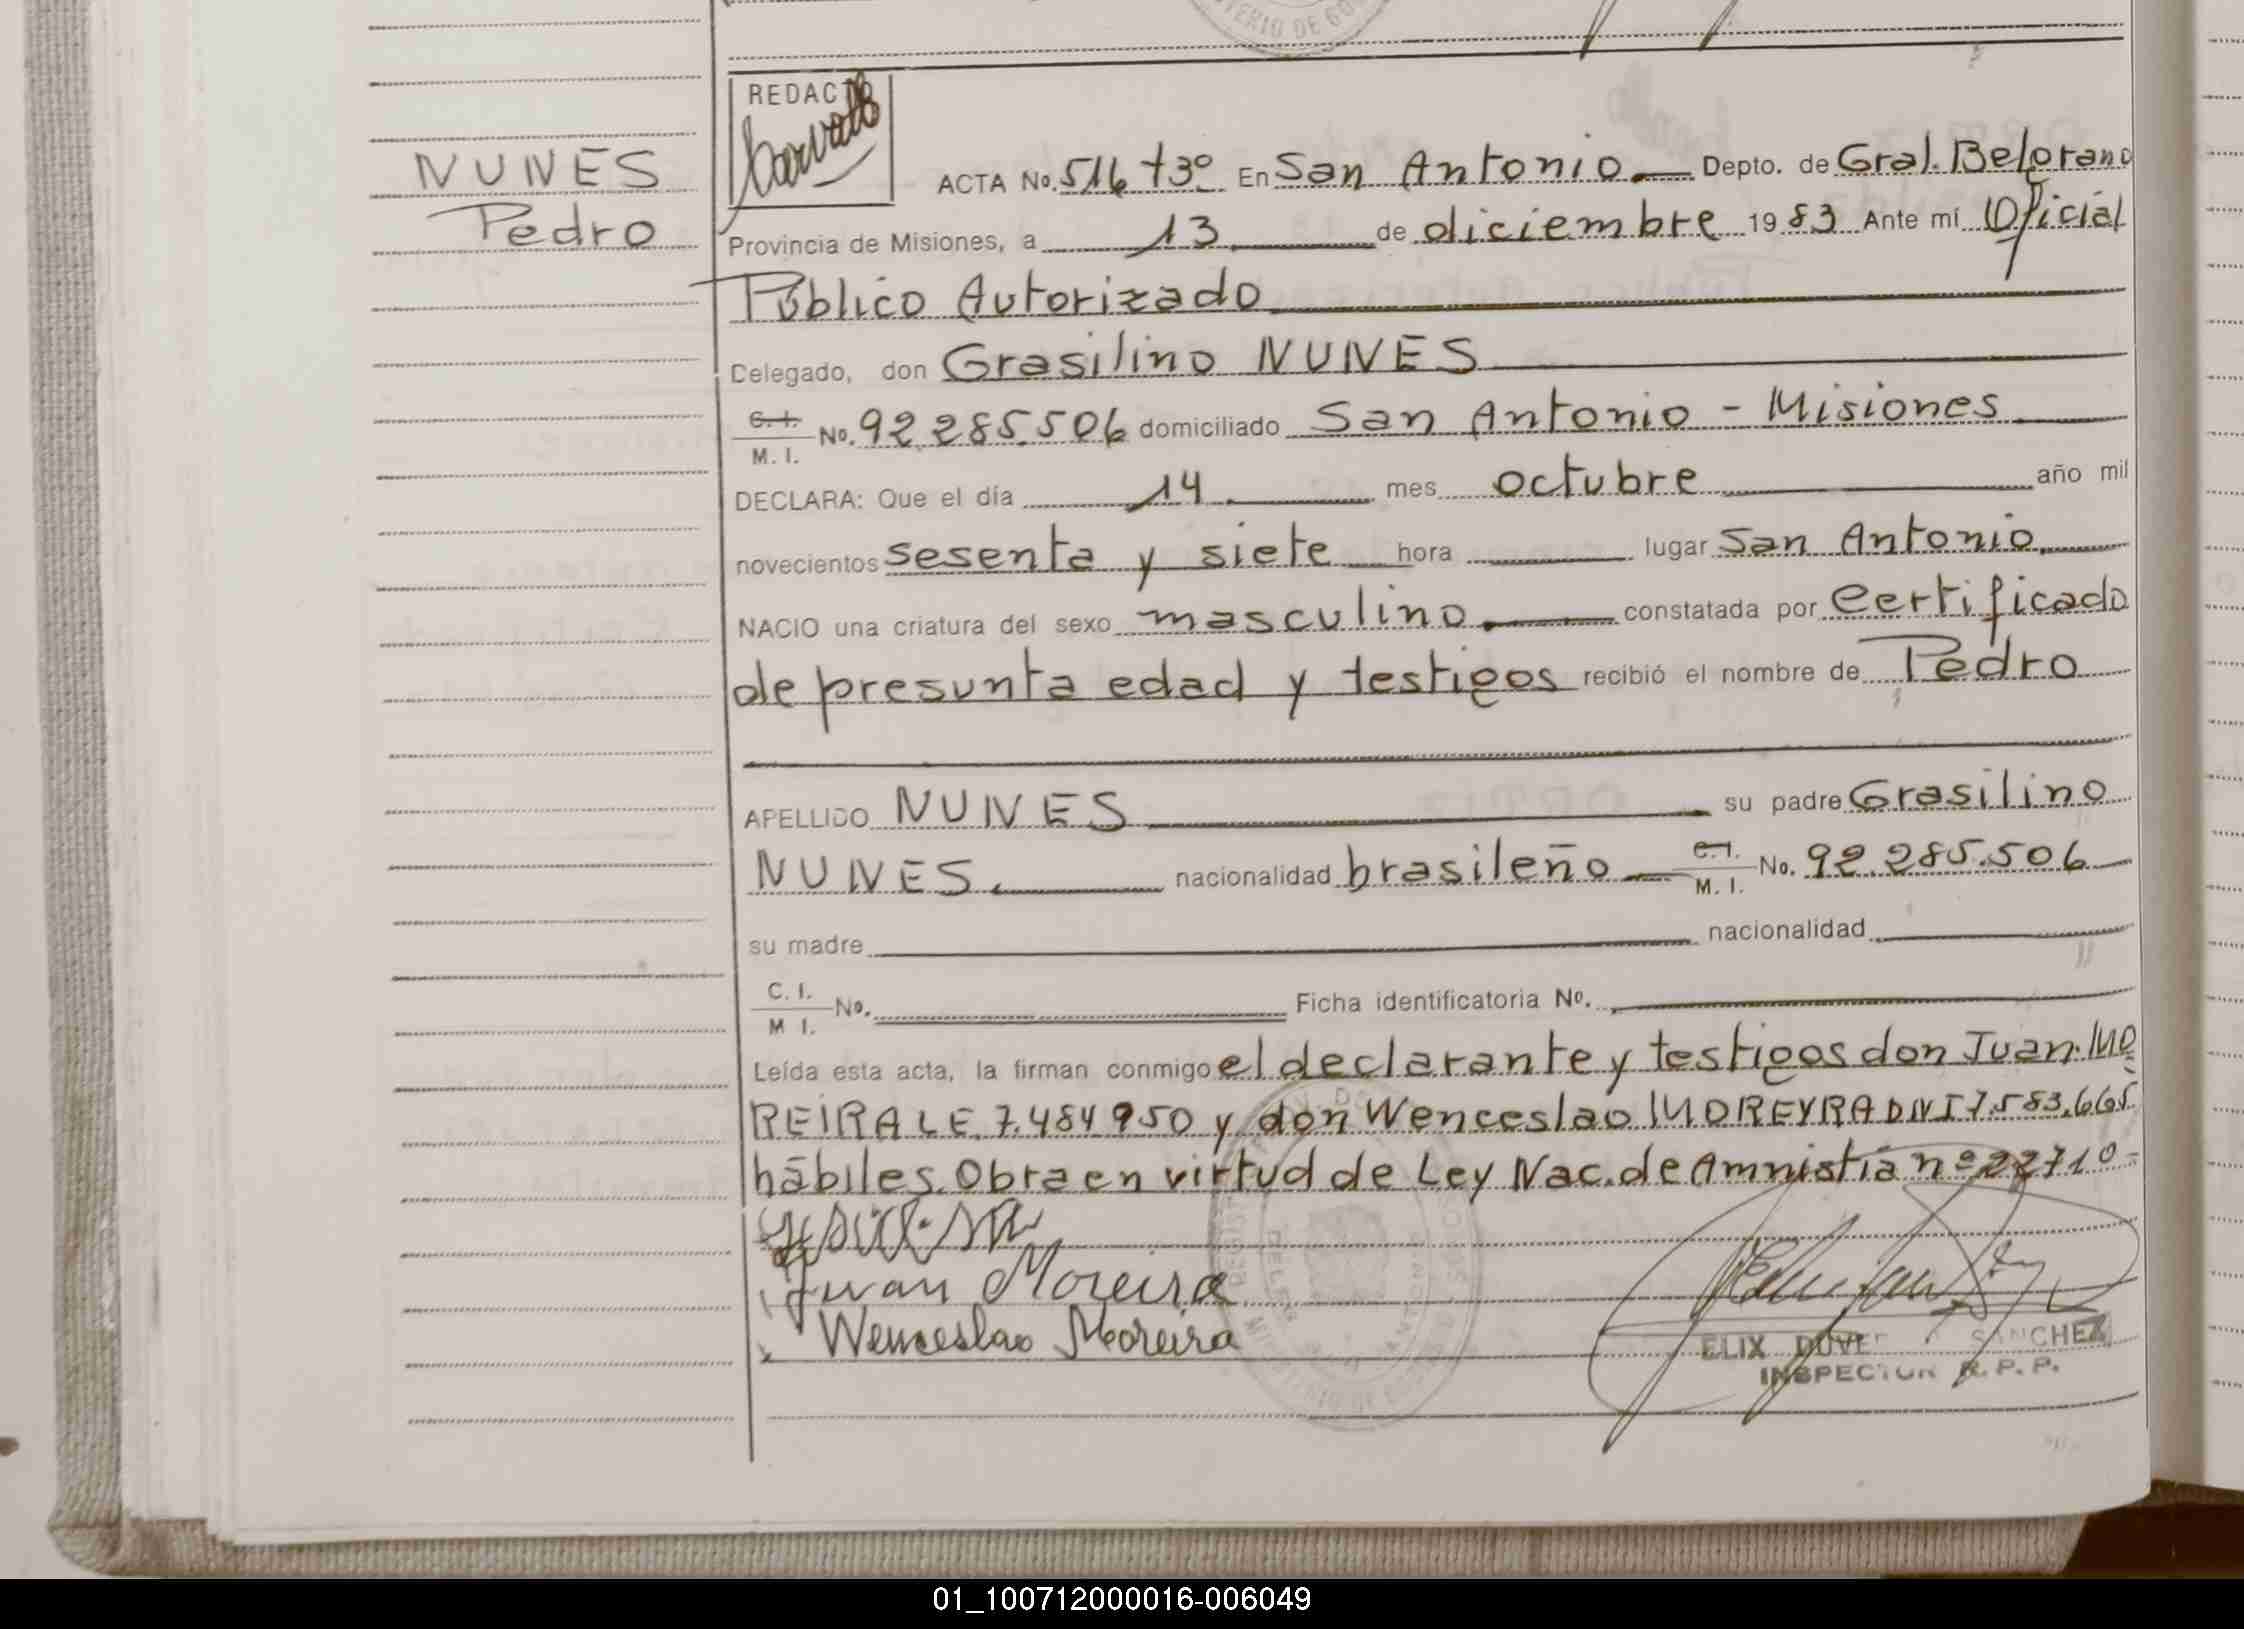 NUNES
Pedro
REDACTO
ACTA No. 516 t3º En San Antonio Depto. de Gral. Belgrano
Provincia de Misiones, a 13 de diciembre 1983 Ante mí Oficial
Público Autorizado
Delegado, don Grasilino NUNES
C.I. M.I. No. 92.285.506 domiciliado San Antonio - Misiones
DECLARA: Que el día 14 mes octubre año mil
novecientos sesenta y siete hora lugar San Antonio
NACIO una criatura del sexo masculino constatada por Certificado
de presunta edad y testigos recibió el nombre de Pedro
APELLIDO NUNES su padre Grasilino
NUNES nacionalidad brasileño C.I. M.I. No. 92.285.506
su madre nacionalidad
C.I. M I. No. Ficha identificatoria No.
Leída esta acta, la firman conmigo el declarante y testigos don Juan MO
REIRA LE 7.484950 y don Wenceslao MOREYRA DNI 7.583.665
hábiles. Obra en virtud de Ley Nac. de Amnistía nº 22710-
Juan Moreira
Wenceslao Moreira
SANCHEZ
INSPECTOR R.P.P.
01_100712000016-006049